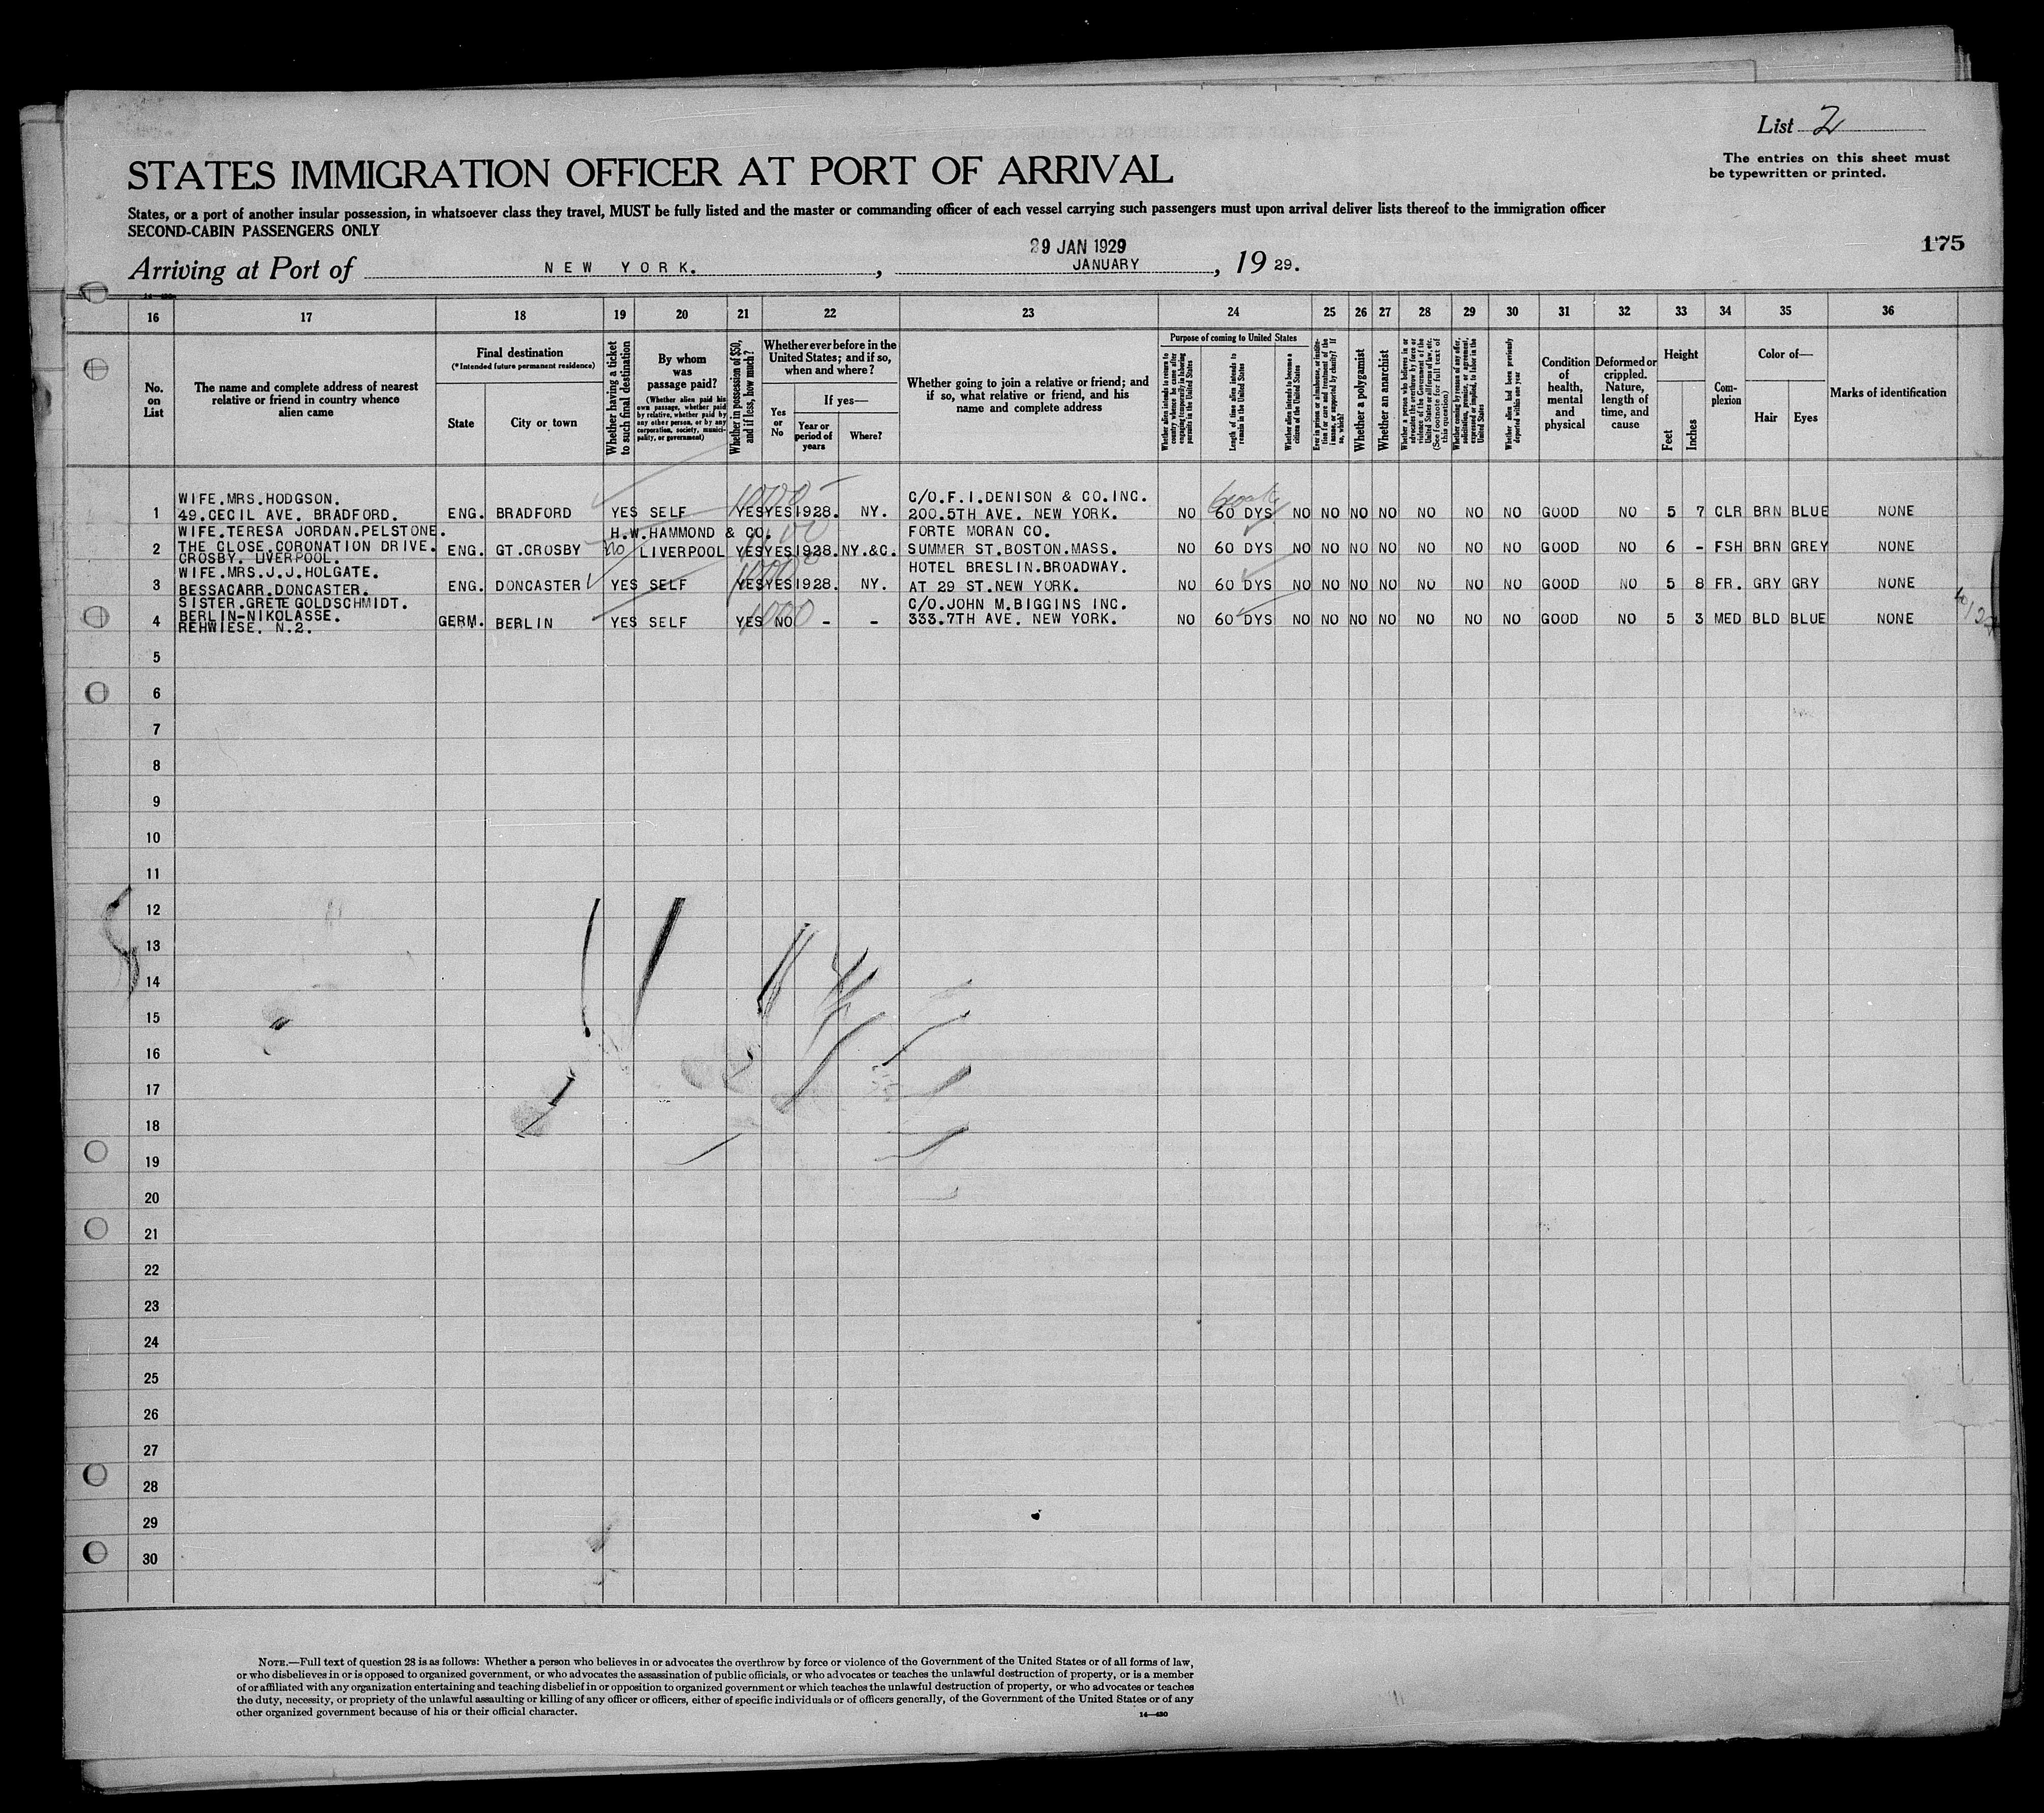 List 2
STATES IMMIGRATION OFFICER AT PORT OF ARRIVAL
The entries on this sheet must
be typewritten or printed.
States, or a port of another insular possession, in whatsoever class they travel, MUST be fully listed and the master or commanding officer of each vessel carrying such passengers must upon arrival deliver lists thereof to the immigration officer
SECOND-CABIN PASSENGERS ONLY
175
29 JAN 1929
Arriving at Port of NEW YORK. , JANUARY , 19 29.
16 17 18 19 20 21 22 23 24 25 26 27 28 29 30 31 32 33 34 35 36
No.
on
List
The name and complete address of nearest
relative or friend in country whence
alien came
Final destination
(*Intended future permanent residence)
State
City or town
Whether having a ticket
to such final destination
By whom
was
passage paid?
(Whether alien paid his
own passage, whether paid
by relative, whether paid by
any other person, or by any
corporation, society, munici-
pality, or government)
Whether in possession of $50,
and if less, how much?
Whether ever before in the
United States; and if so,
when and where?
Yes
or
No
If yes—
Year or
period of
years
Where?
Whether going to join a relative or friend; and
if so, what relative or friend, and his
name and complete address
Purpose of coming to United States
Whether alien intends to return to
country whence he came after
engaging temporarily in laboring
pursuits in the United States
Length of time alien intends to
remain in the United States
Whether alien intends to become a
citizen of the United States
Ever in prison or almshouse, or institu-
tion for care and treatment of the
insane, or supported by charity? If
so, which?
Whether a polygamist
Whether an anarchist
Whether a person who believes in or
advocates the overthrow by force or
violence of the Government of the
United States or all forms of law, etc.
(See footnote for full text of
this question)
Whether coming by reason of any offer,
solicitation, promise, or agreement,
expressed or implied, to labor in the
United States
Whether alien had been previously
deported within one year
Condition
of
health,
mental
and
physical
Deformed or
crippled.
Nature,
length of
time, and
cause
Height
Feet
Inches
Com-
plexion
Color of—
Hair
Eyes
Marks of identification
WIFE.MRS.HODGSON. C/O.F.I.DENISON & CO.INC.
1 49.CECIL AVE. BRADFORD. ENG. BRADFORD YES SELF YES YES 1928. NY. 200.5TH AVE. NEW YORK. NO 60 DYS NO NO NO NO NO NO NO GOOD NO 5 7 CLR BRN BLUE NONE
WIFE.TERESA JORDAN.PELSTONE. H.W.HAMMOND & CO. FORTE MORAN CO.
2 THE CLOSE.CORONATION DRIVE. ENG. GT.CROSBY No LIVERPOOL YES YES 1928. NY.&C. SUMMER ST.BOSTON.MASS. NO 60 DYS NO NO NO NO NO NO NO GOOD NO 6 - FSH BRN GREY NONE
CROSBY. LIVERPOOL.
WIFE.MRS.J.J.HOLGATE. HOTEL BRESLIN.BROADWAY.
3 BESSACARR.DONCASTER. ENG. DONCASTER YES SELF 1000 YES YES 1928. NY. AT 29 ST.NEW YORK. NO 60 DYS NO NO NO NO NO NO NO GOOD NO 5 8 FR. GRY GRY NONE
SISTER.GRETE GOLDSCHMIDT. C/O.JOHN M.BIGGINS INC.
BERLIN-NIKOLASSE.
4 REHWIESE. N.2. GERM. BERLIN YES SELF YES 1000 NO - - 333.7TH AVE. NEW YORK. NO 60 DYS NO NO NO NO NO NO NO GOOD NO 5 3 MED BLD BLUE NONE
5
6
7
8
9
10
11
12
13
14
15
16
17
18
19
20
21
22
23
24
25
26
27
28
29
30
NOTE.—Full text of question 28 is as follows: Whether a person who believes in or advocates the overthrow by force or violence of the Government of the United States or of all forms of law,
or who disbelieves in or is opposed to organized government, or who advocates the assassination of public officials, or who advocates or teaches the unlawful destruction of property, or is a member
of or affiliated with any organization entertaining and teaching disbelief in or opposition to organized government or which teaches the unlawful destruction of property, or who advocates or teaches
the duty, necessity, or propriety of the unlawful assaulting or killing of any officer or officers, either of specific individuals or of officers generally, of the Government of the United States or of any
other organized government because of his or their official character.
14—430